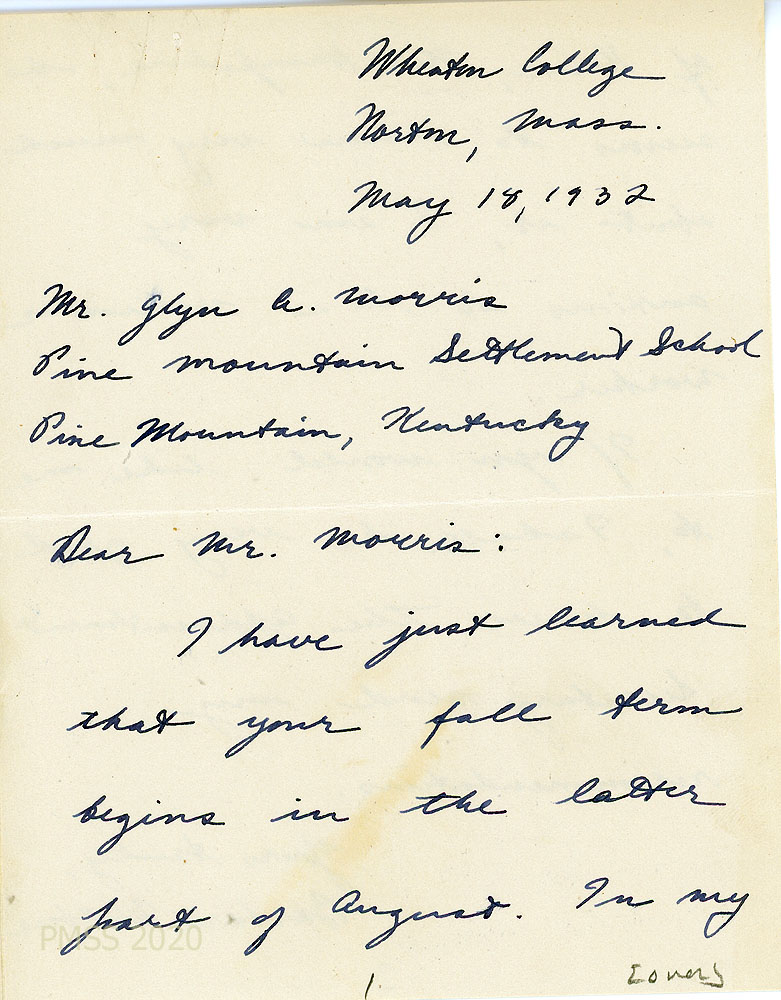 Wheaton College
Norton, Mass.
May 18, 1932
Mr. Glyn A. Morris
Pine Mountain Settlement School
Pine Mountain, Kentucky
Dear Mr. Morris:
I have just learned
that your fall term
begins in the latter
part of August. In my
PMSS 2020
1.